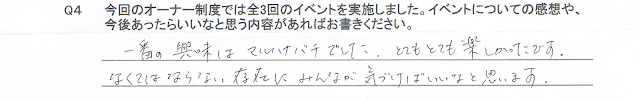 Q4 今回のオーナー制度では全3回のイベントを実施しました。イベントについての感想や、
今後あったらいいなと思う内容があればお書きください。
一番の興味はマルハナバチでした。とてもとても楽しかったです。
なくてはならない存在にみんなが気づけばいいなと思います。